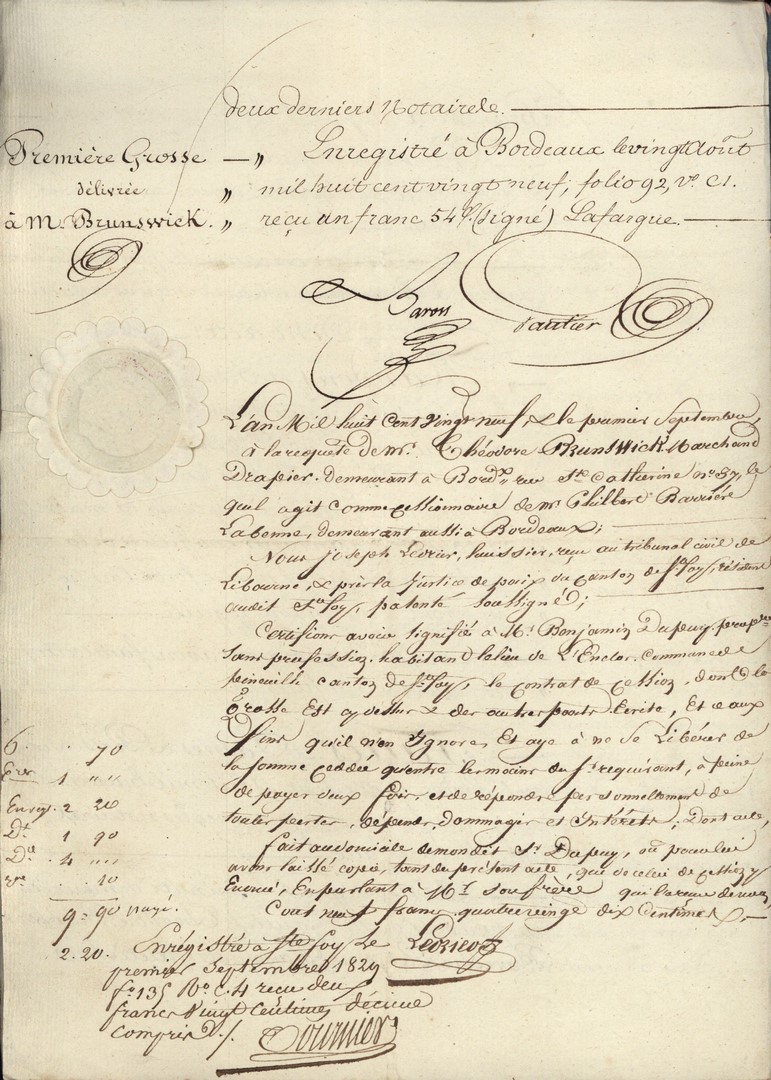 deux derniers Notaires.
Première Grosse
délivrée
à M. Brunswick.
Enregistré à Bordeaux le vingt Août
mil huit cent vingt neuf; folio 92, v.º C 1.
reçu un franc 54 c. (signé) Lafargue.
Baron Gautier
L'an Mil huit Cent Vingt neuf, & le premier Septembre,
à la requête de Mr. Théodore Brunswick Marchand
Drapier, demeurant à Bordx. rue Ste. Catherine nº 57, le
quel agit comme Cessionnaire de Mr Philbert Barrière
Labenne, demeurant aussi à Bordeaux;
Nous Joseph Ledrier, huissier, reçu au tribunal civil de
Libourne, & près la Justice de paix du Canton de Ste foy, résidant
audit Ste foy, patenté Soussigné;
Certifions avoir signifié à Mr. Benjamin Dupuy propre.
sans profession habitant au lieu de L'Enclos, Commune de
pineuilh canton de Ste foy, le contrat de cession, dont la
Grosse Est cy dessus & des autres parts Ecrite, Et ce aux
fins qu'il n'en Ignore, Et aye à ne se Libérer de
la somme cédée qu'entre les mains du Sr. requérant, à peine
de payer deux fois, et de répondre personnellement de
toutes pertes, dépends, dommages et Intérêts; Dont acte,
fait au domicile de mondit Sr. Dupuy, où pour lui
avons laissé copie, tant du présent acte, que de celui de Cession y
Enoncé, En parlant à Mr son frère
Cout neuf francs quatre vingt dix Centimes,
6. 70
1 " "
Enreg. 2 20
Dt. 1 90
4 " "
10
9 = 90 payé.
Ledrier
2.20. Enrégistré à Ste foy Le
premier Septembre 1829
fº 135 Vº c. 4 reçu deux
francs Vingt Centimes décime
compris ./.
Fournier